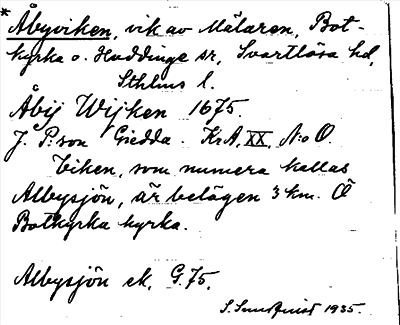 * Åbyviken, vik av Mälaren, Bot-
kyrka o. Huddinge sr, Svartlösa hd,
Sthlms l.
Åbij Wijken 1675.
J. P:son Giedda. KrA, XX, N:o O.
Viken, som numera kallas
Albysjön, är belägen 3 km. Ö
Botkyrka kyrka.
Albysjön ek. G. 75.
S. Sundquist 1935.